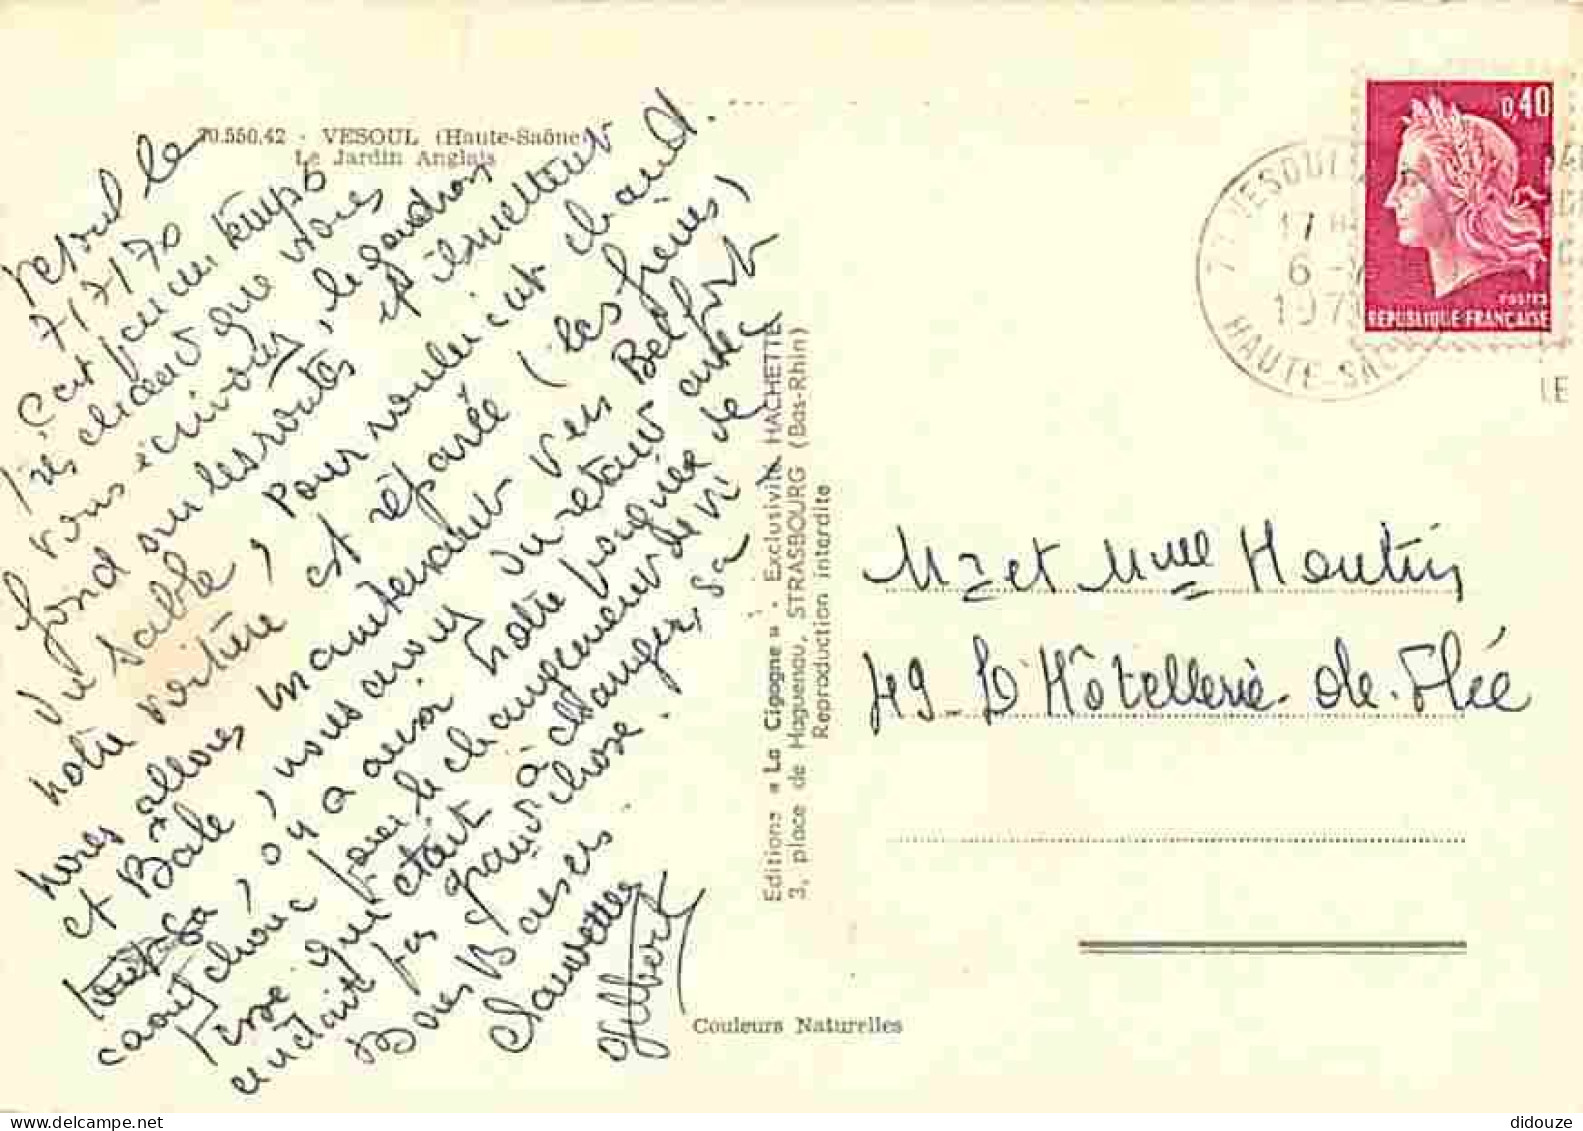 70.550.42 - VESOUL (Haute-Saône)
Le Jardin Anglais
Vesoul le
7/7/70
C'est par un temps
très chaud que nous
vous écrivons, le goudron
fond sur les routes et ils mettent
du sable, pour rouler c'est chaud.
notre voiture est réparée (les freins)
nous allons maintenant vers Belfort
et Bâle, nous avons du retard avec
, on y a aussi notre poignée de
caoutchouc pour le changement de vi
tesse qui était à changer, sa
en était pas grand chose.
Bons Baisers
Claudette
Gilbert
Editions « La Cigogne » - Exclusivité HACHETTE
3, place de Haguenau, STRASBOURG (Bas-Rhin)
Reproduction interdite
Couleurs Naturelles
0,40
POSTES
REPUBLIQUE FRANÇAISE
VESOUL
17 H
6 -
197
HAUTE-SAÔ
LE
Mr et Mme Houtin
49 - L'Hôtellerie - de - Flée
didouze